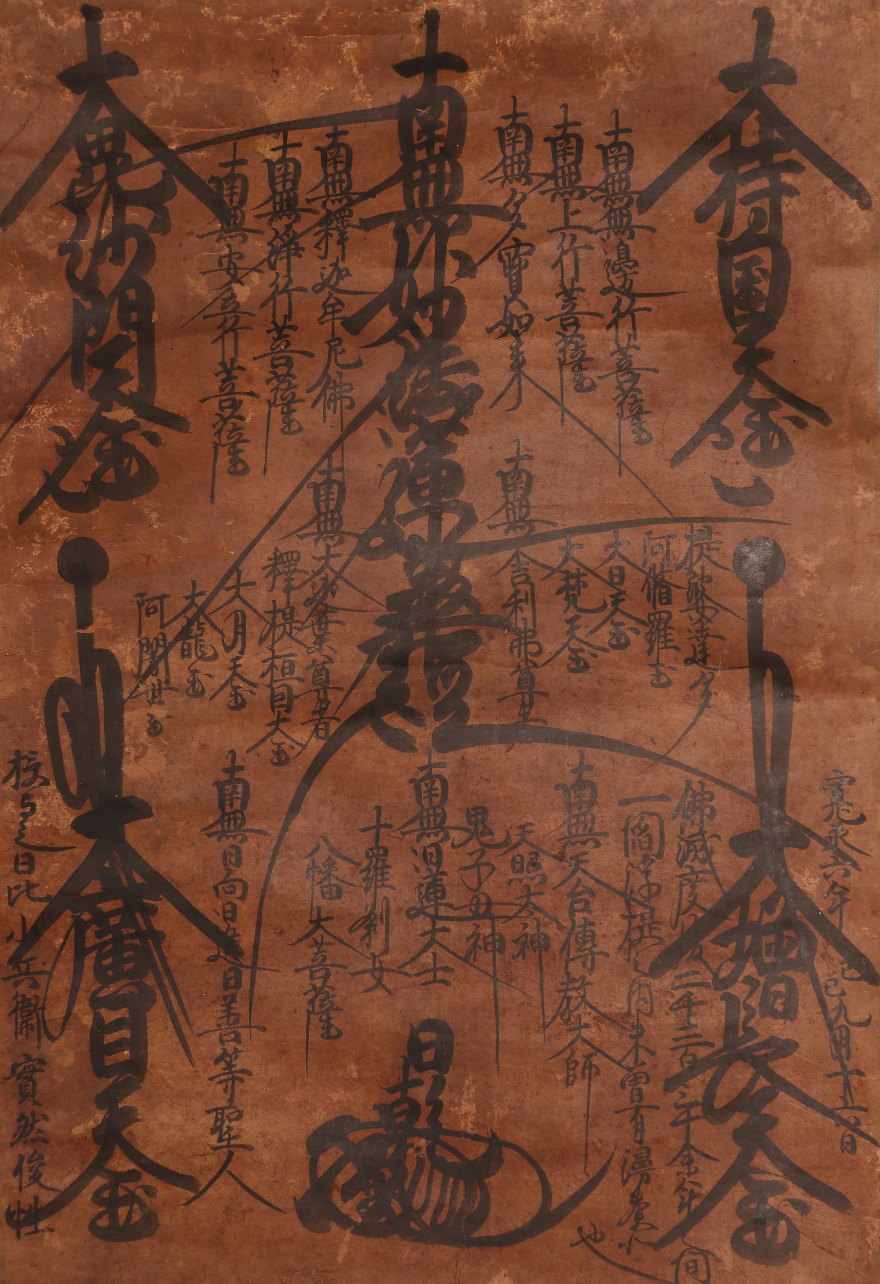 大持国天王
南無無邊行菩薩
南無上行菩薩
南無多寳如来
南無妙法蓮華経
南無釋迦牟尼佛
南無浄行菩薩
南無安立行菩薩
大毘沙門天王
提婆達多
阿脩羅王
大日天王
大梵天王
南無舎利弗尊者
南無大迦葉尊者
釋提桓因大王
大月天王
大龍王
阿闍世王
寛永六年己巳九月十三日
大増長天王
佛滅度後二千二百
一閻浮提之内未曾有漫荼羅
也
南無天台傳教大師
天照太神
鬼子母神
南無日蓮大士
十羅刹女
八幡大菩薩
南無日向日進日善等聖人
大廣目天王
日乾
授与之日比小兵衛